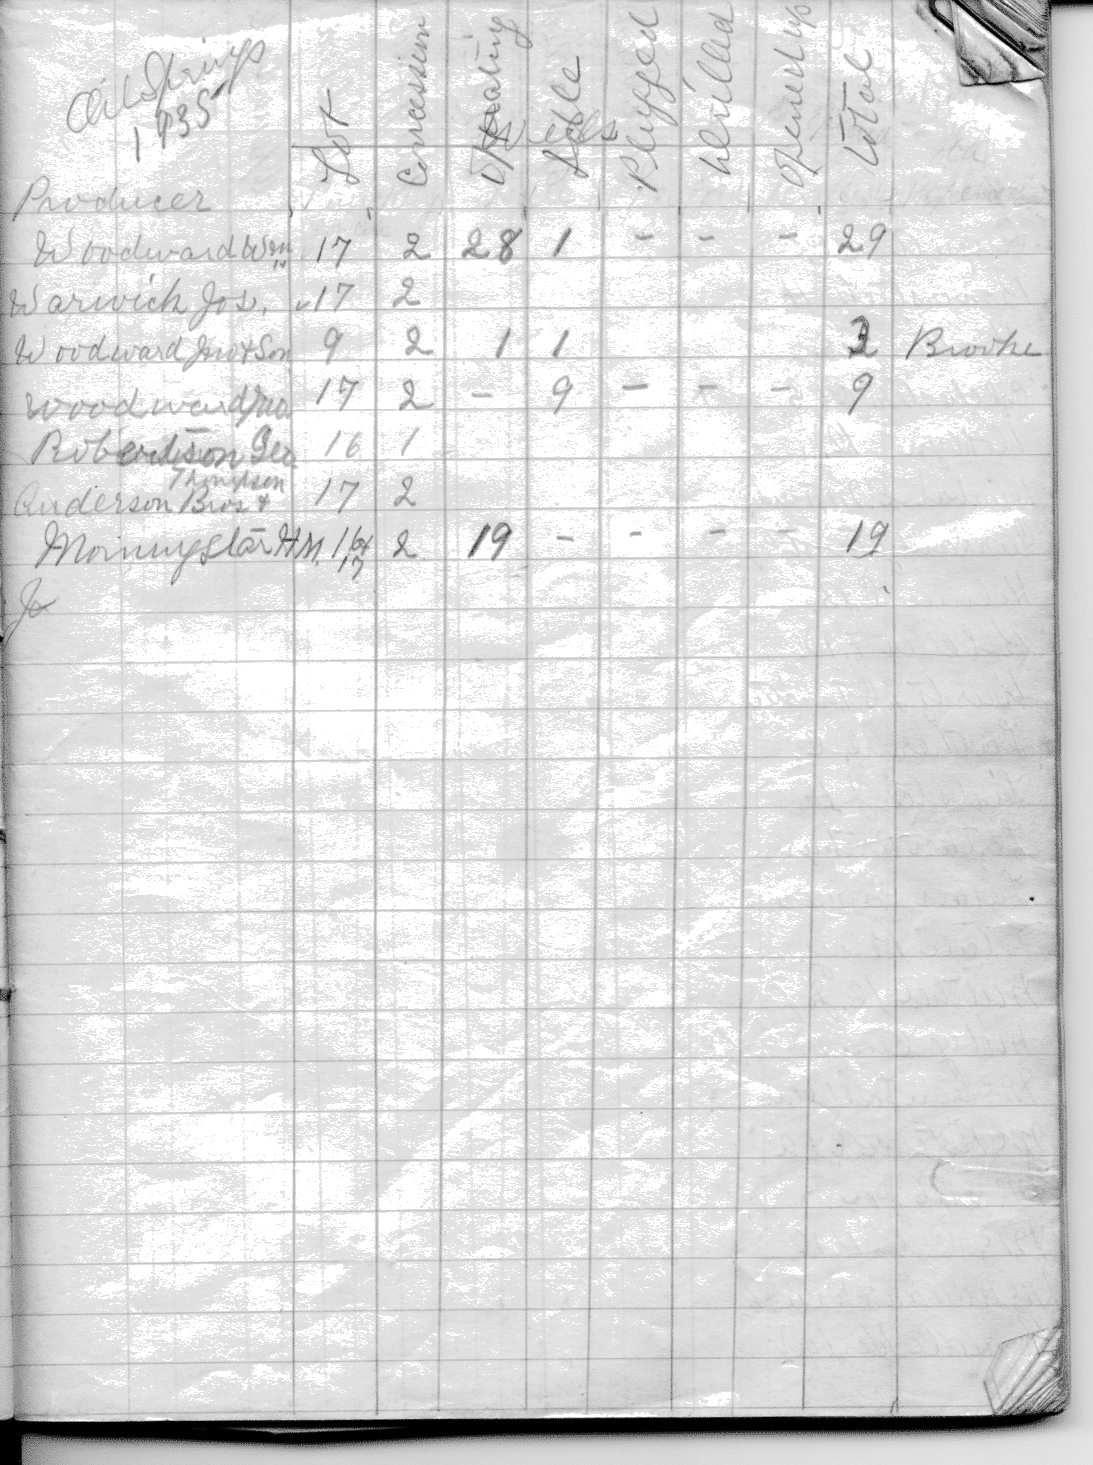 Oil Springs
1935
Producer Lot Concession Operating Idle Plugged Drilled Opened up Total
Wells
Woodward Wm 17 2 28 1 - - - 29
Warwick Jos. 17 2
Woodward Jno + Son 9 2 1 1 2 Brooke
Woodward Jno. 17 2 - 9 - - - 9
Robertson Geo 16 1
Thompson
Anderson Bros + 17 2
Morningstar H.M. 16 + 2 19 - - - - 19
17
Jo